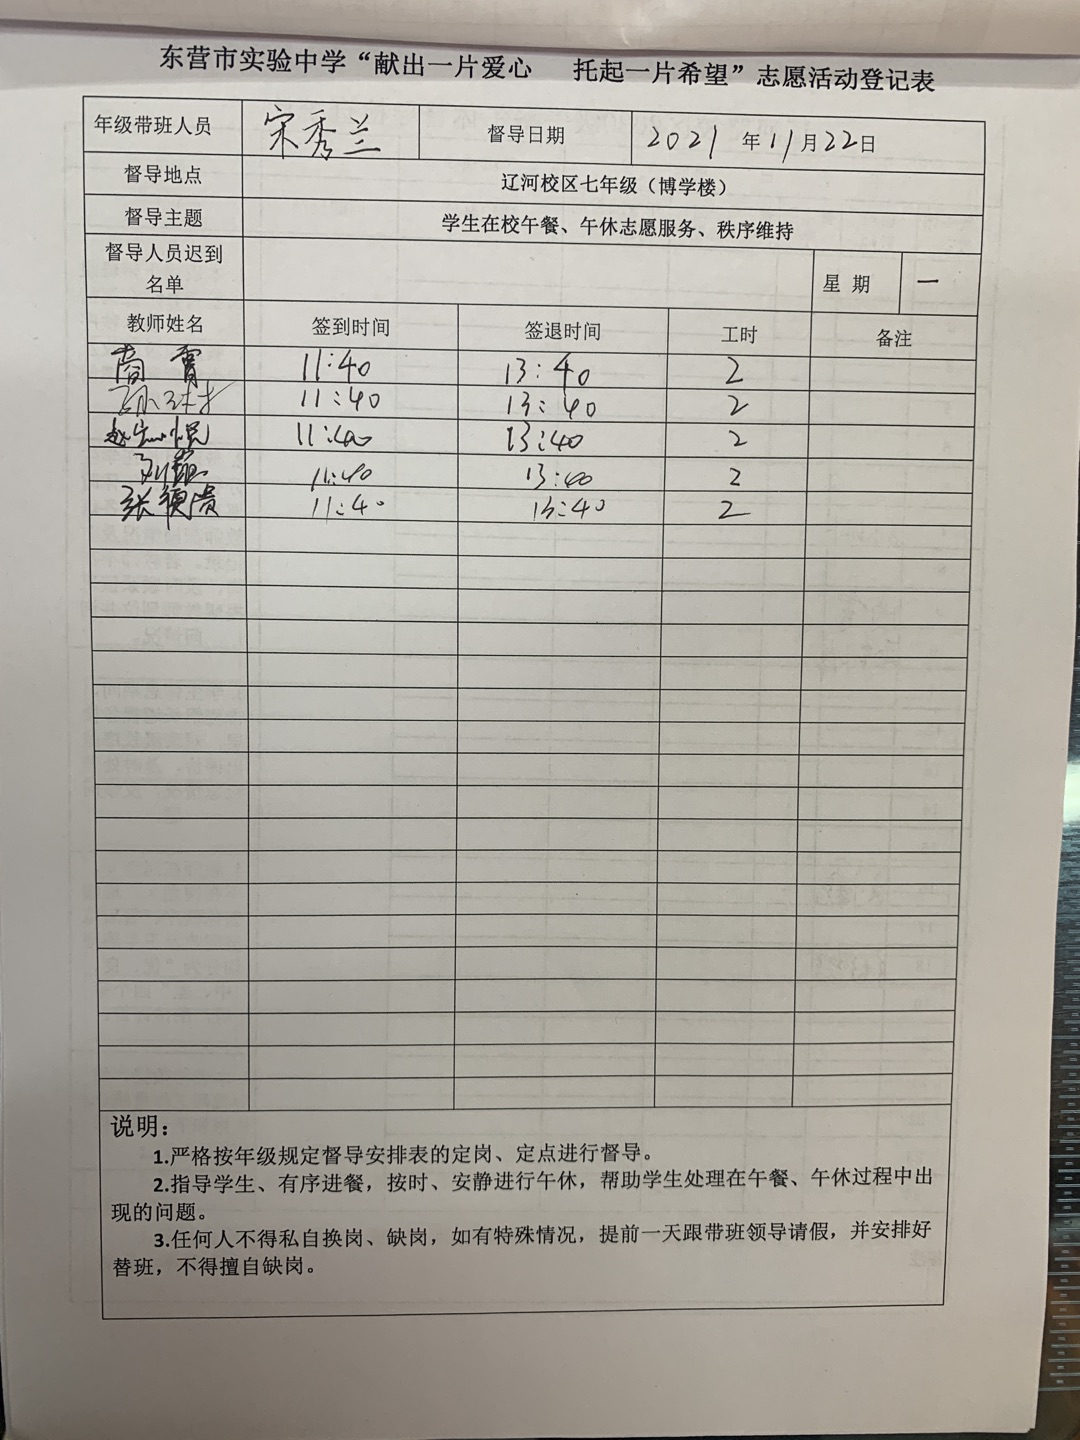 东营市实验中学“献出一片爱心 托起一片希望”志愿活动登记表
年级带班人员 宋秀兰 督导日期 2021 年 11 月 22 日
督导地点 辽河校区七年级（博学楼）
督导主题 学生在校午餐、午休志愿服务、秩序维持
督导人员迟到
名单 星 期 一
教师姓名 签到时间 签退时间 工时 备注
11:40 13:40 2
11:40 13:40 2
11:40 13:40 2
11:40 13:40 2
11:40 13:40 2
说明：
1.严格按年级规定督导安排表的定岗、定点进行督导。
2.指导学生、有序进餐，按时、安静进行午休，帮助学生处理在午餐、午休过程中出
现的问题。
3.任何人不得私自换岗、缺岗，如有特殊情况，提前一天跟带班领导请假，并安排好
替班，不得擅自缺岗。